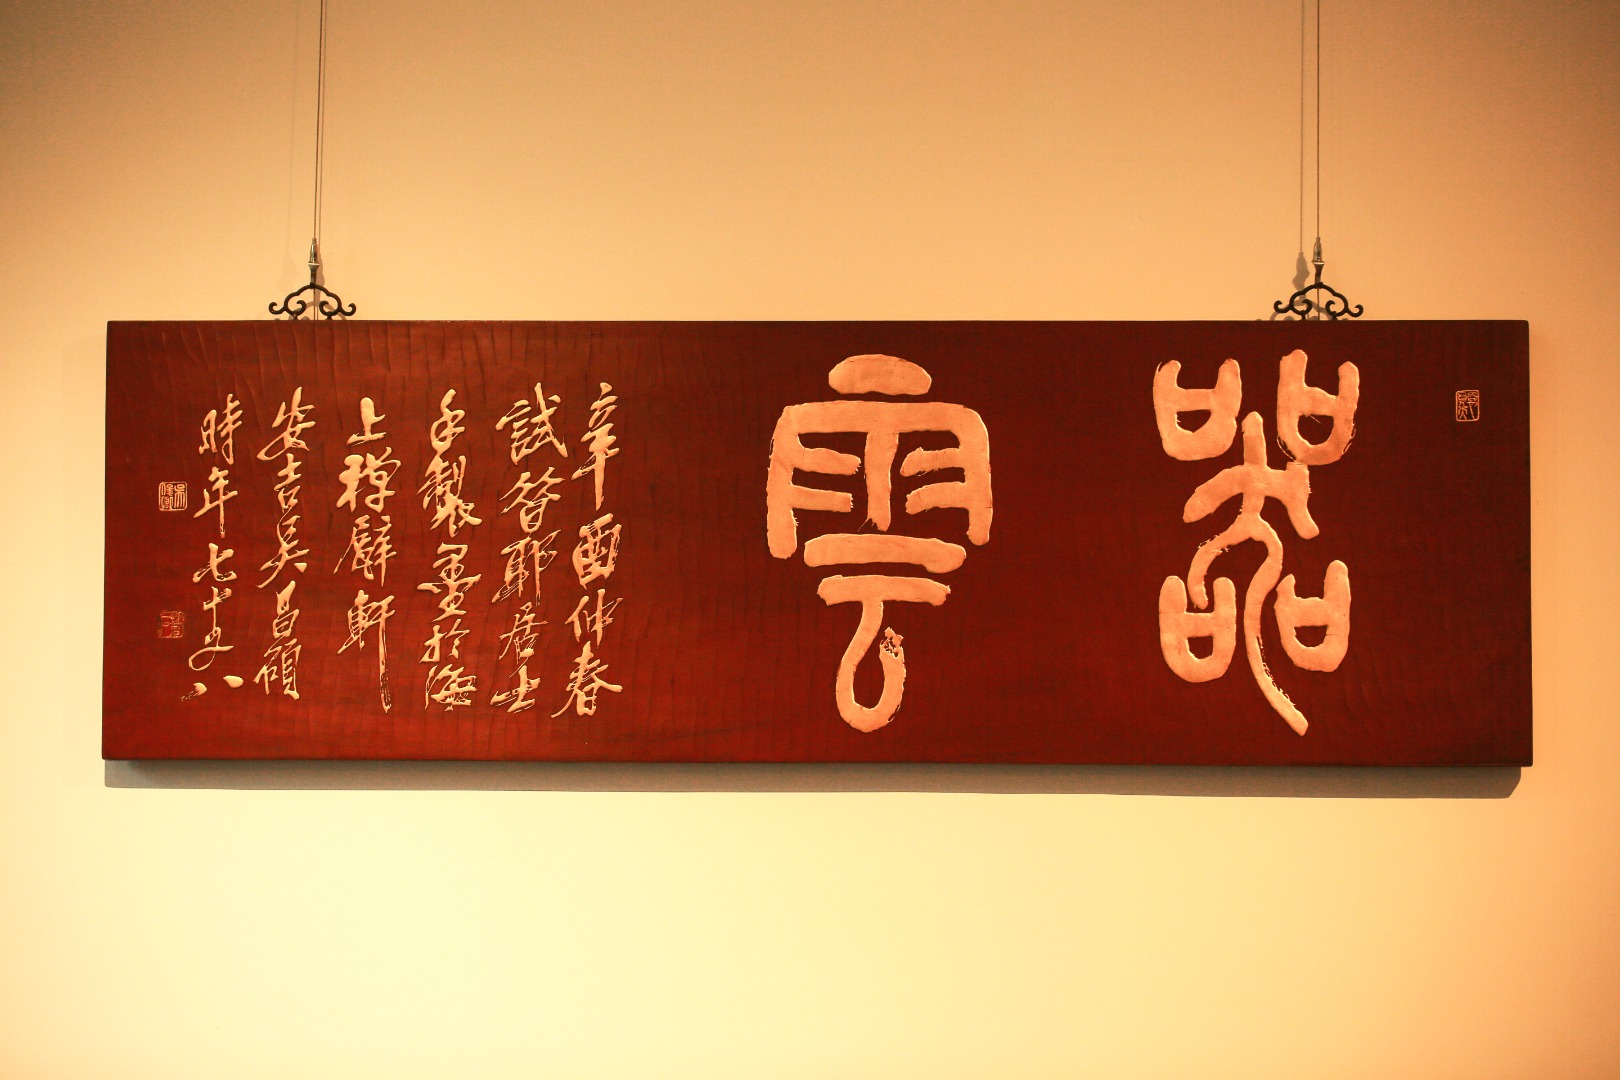 器雲
辛酉仲春
試耶居士
手製墨於海
上禪甓軒
安吉吳昌碩
時年七十又八